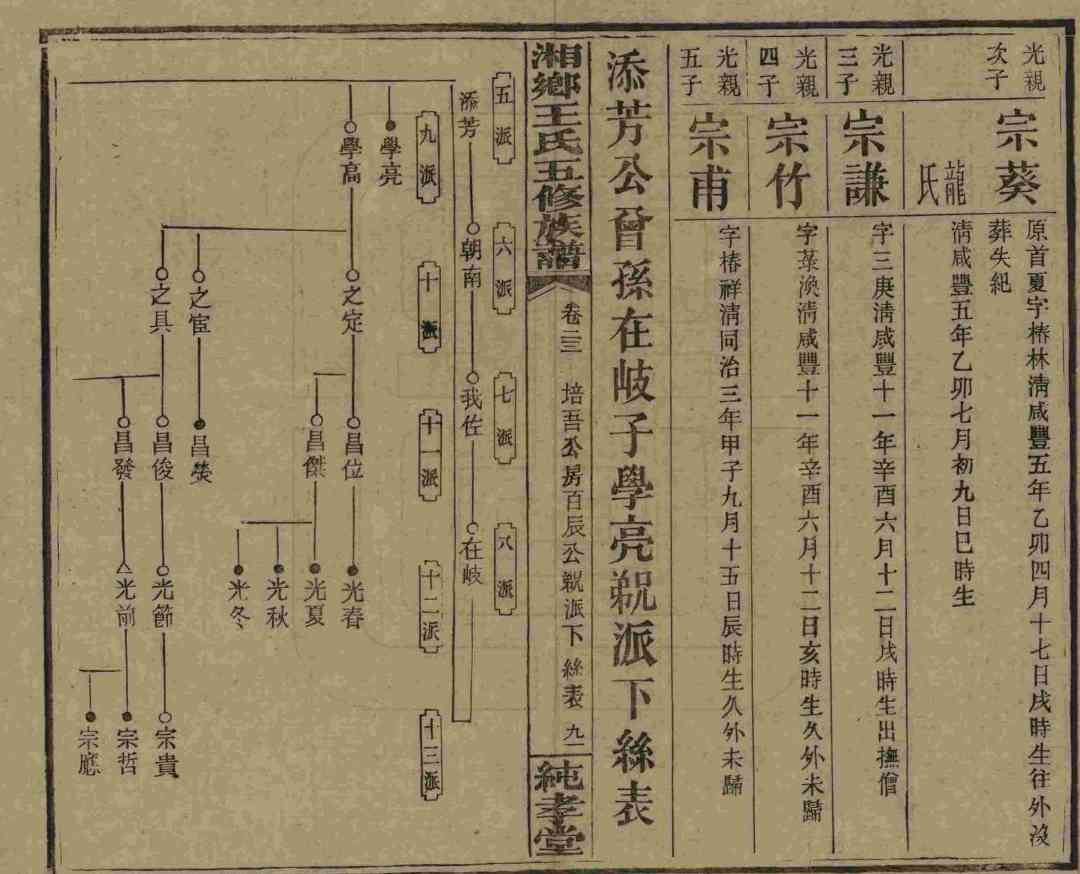 光親
次子
宗葵
原首夏字椿林淸咸豐五年乙卯四月十七日戌時生往外沒
葬失紀
龍氏
淸咸豐五年乙卯七月初九日巳時生
光親
三子
宗謙
字三庚淸咸豐十一年辛酉六月十二日戌時生出撫僧
光親
四子
宗竹
字菉渙淸咸豐十一年辛酉六月十二日亥時生久外未歸
光親
五子
宗甫
字椿祥淸同治三年甲子九月十五日辰時生久外未歸
添芳公曾孫在岐子學亮覣派下絲表
湘鄉王氏五修族譜
卷二三
培吾公房百辰公覣派下絲表
九一
純孝堂
五派
六派
七派
八派
添芳
朝南
我佐
在岐
九派
十派
十一派
十二派
十三派
學亮
學高
之定
昌位
光春
昌傑
光夏
光秋
光冬
之宦
昌榮
之具
昌俊
光節
宗貴
昌發
光前
宗哲
宗應